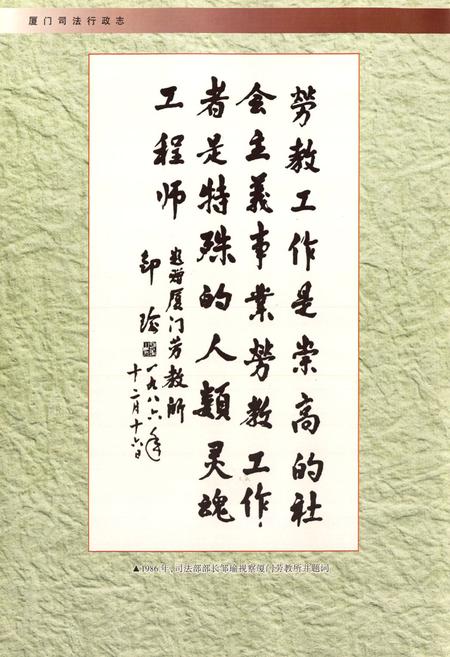 厦门司法行政志
勞教工作是崇高的社
会主義事業勞教工作
者是特殊的人類灵魂
工程师
厦门劳教所
邹瑜
一九八六年
十二月十六日
▲1986年,司法部部长邹瑜视察厦门劳教所并题词